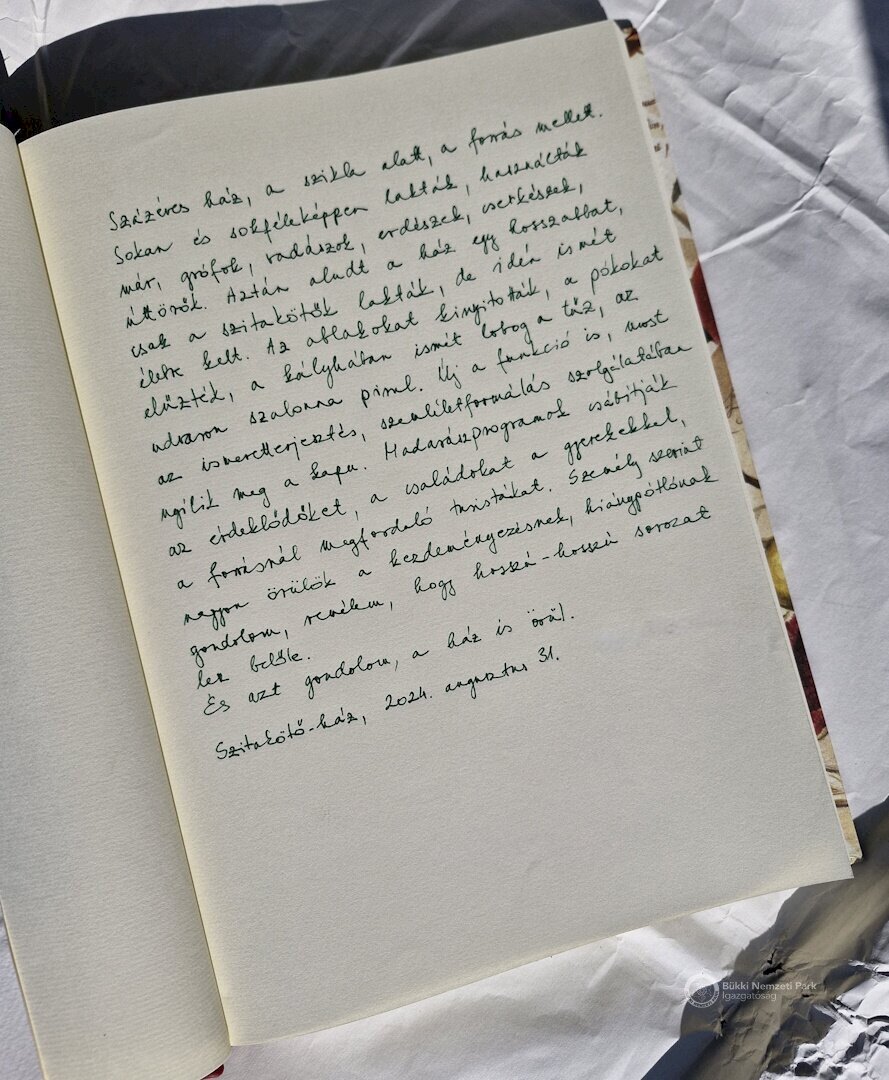 Százéves ház, a szikla alatt, a forrás mellett.
Sokan és sokféleképpen lakták, használták
már, grófok, vadászok, erdészek, cserkészek,
úttörők. Aztán aludt a ház egy hosszabbat,
csak a szitakötők lakták, de idén ismét
életre kelt. Az ablakokat kinyitották, a pókokat
elűzték, a kályhában ismét lobog a tűz, az
udvaron szalonna pirul. Új a funkció is, most
az ismeretterjesztés, szemléletformálás szolgálatában
nyílik meg a kapu. Madarászprogramok csábítják
az érdeklődőket, a családokat a gyerekekkel,
a forrásnál megforduló turistákat. Személy szerint
nagyon örülök a kezdeményezésnek, hiánypótlónak
gondolom, remélem, hogy hosszú-hosszú sorozat
lesz belőle.
És azt gondolom, a ház is örül.
Szitakötő-ház, 2024. augusztus 31.
Bükki Nemzeti Park
Igazgatóság